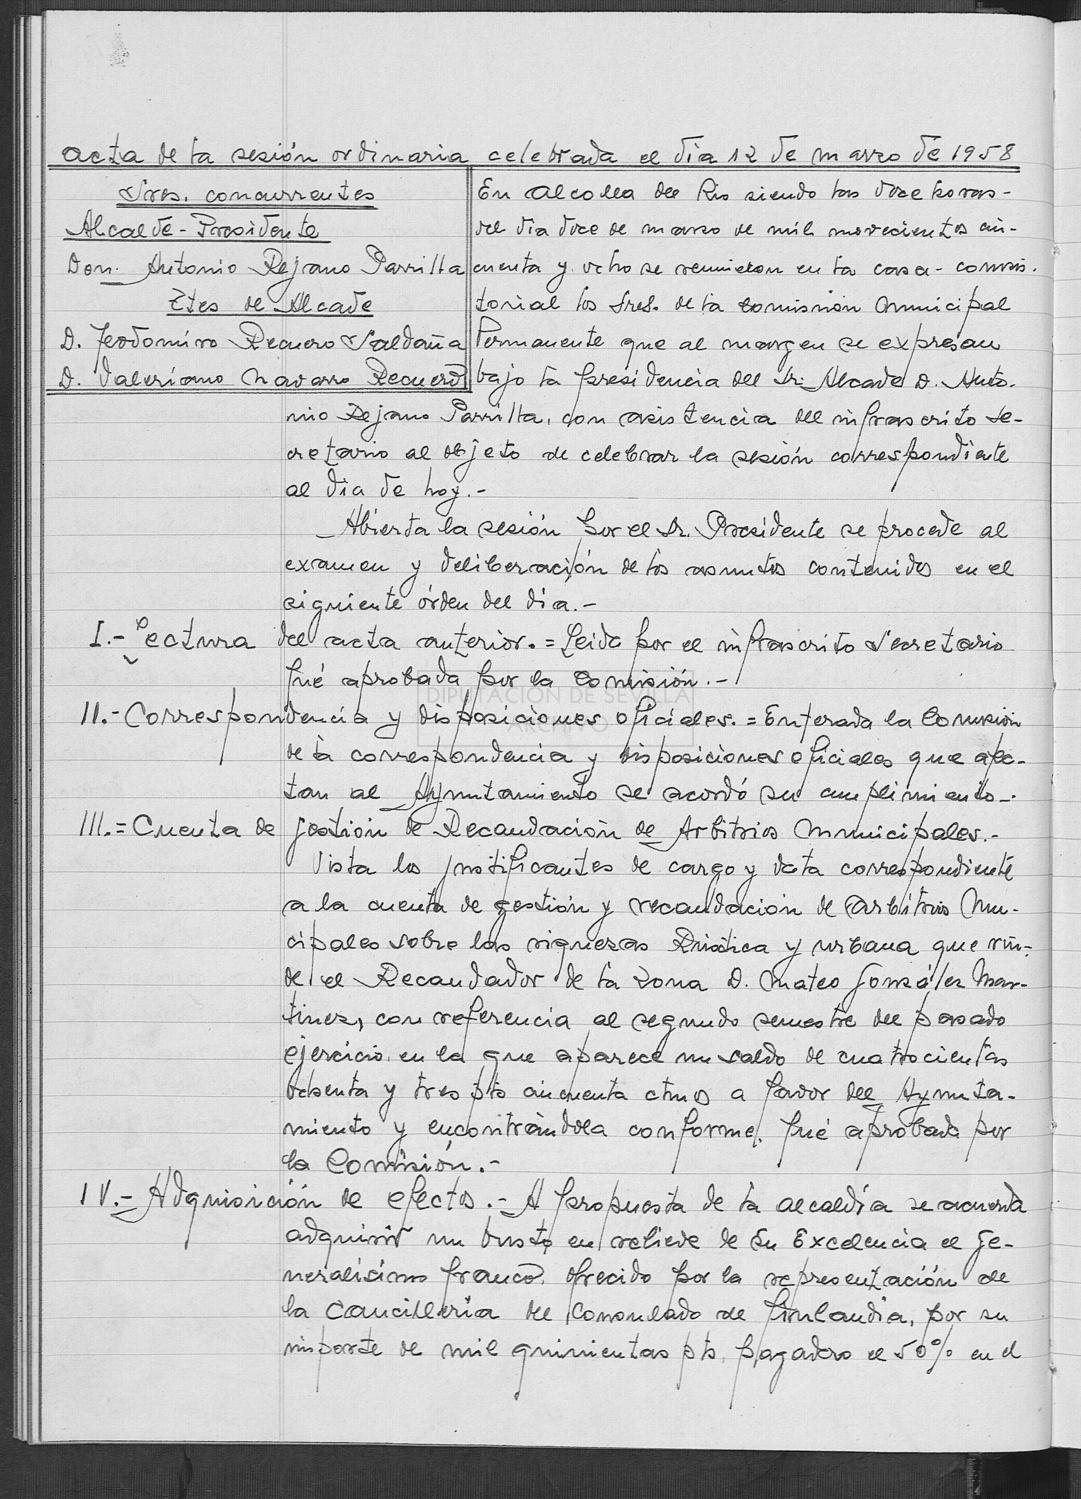 acta de la sesión ordinaria celebrada el día 12 de marzo de 1958
Sres. concurrentes
Alcalde-Presidente
Don. Antonio Rejano Parrilla
Ttes de Alcade
D. Teodomiro Recuero Saldaña
D. Valeriano Navarro Recuero
En Alcolea del Rio siendo las doce horas-
del dia doce de marzo de mil novecientos cin-
cuenta y ocho se reunieron en la casa-consis-
torial los Sres. de la Comisión Municipal
Permanente que al margen se expresan
bajo la presidencia del Sr. Alcade D. Anto-
nio Rejano Parrilla, con asistencia del infrascrito Se-
cretario al objeto de celebrar la sesión correspondiente
al dia de hoy.-
Abierta la sesión por el Sr. Presidente se procede al
examen y deliberación de los asuntos contenidos en el
siguiente órden del dia.-
I.- Lectura del acta anterior.= Leida por el infrascrito Secretario
fué aprobada por la Comisión.-
DIPUTACIÓN DE SEVILLA
ARCHIVO
II.- Correspondencia y disposiciones oficiales.= Enterada la Comisión
de la correspondencia y disposiciones oficiales que afec-
tan al Ayuntamiento se acordó su cumplimiento-.
III.= Cuenta de gestión de Recaudación de Arbitrios Municipales.-
Vista los justificantes de cargo y data correspondiente
a la cuenta de gestión y recaudación de Arbitrios Mu-
cipales sobre las riquezas Rústica y urbana que rin-
de el Recaudador de la Zona D. Mateo González Mar-
tinez, con referencia al segundo semestre del pasado
ejercicio, en la que aparece un saldo de cuatrocientas
ochenta y tres pts cincuenta ctmos a favor del Ayunta-
miento y encontrándola conforme, fué aprobada por
la Comisión.-
IV.- Adquisición de efectos.- A propuesta de la alcaldía se acuerda
adquirir un busto en relieve de Su Excelencia el Ge-
neralísimo Franco, ofrecido por la representación de
la Cancilleria del Consulado de Finlandia, por su
importe de mil quinientas pts, pagadero el 50% en el